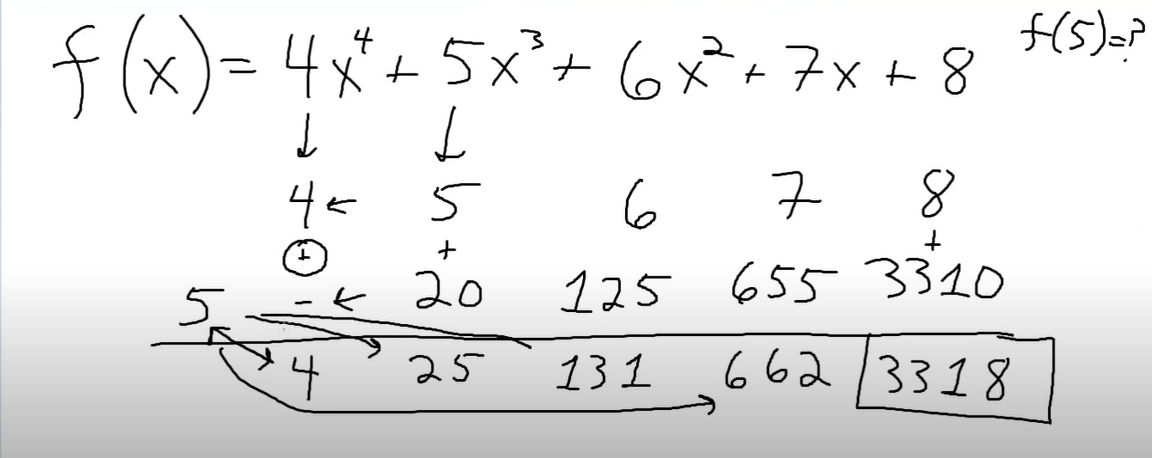 f(x) = 4x⁴ + 5x³ + 6x² + 7x + 8 f(5)=?
↓ ↓
4 ← 5 6 7 8
+ + +
5 - ← 20 125 655 3310
4 25 131 662 3318